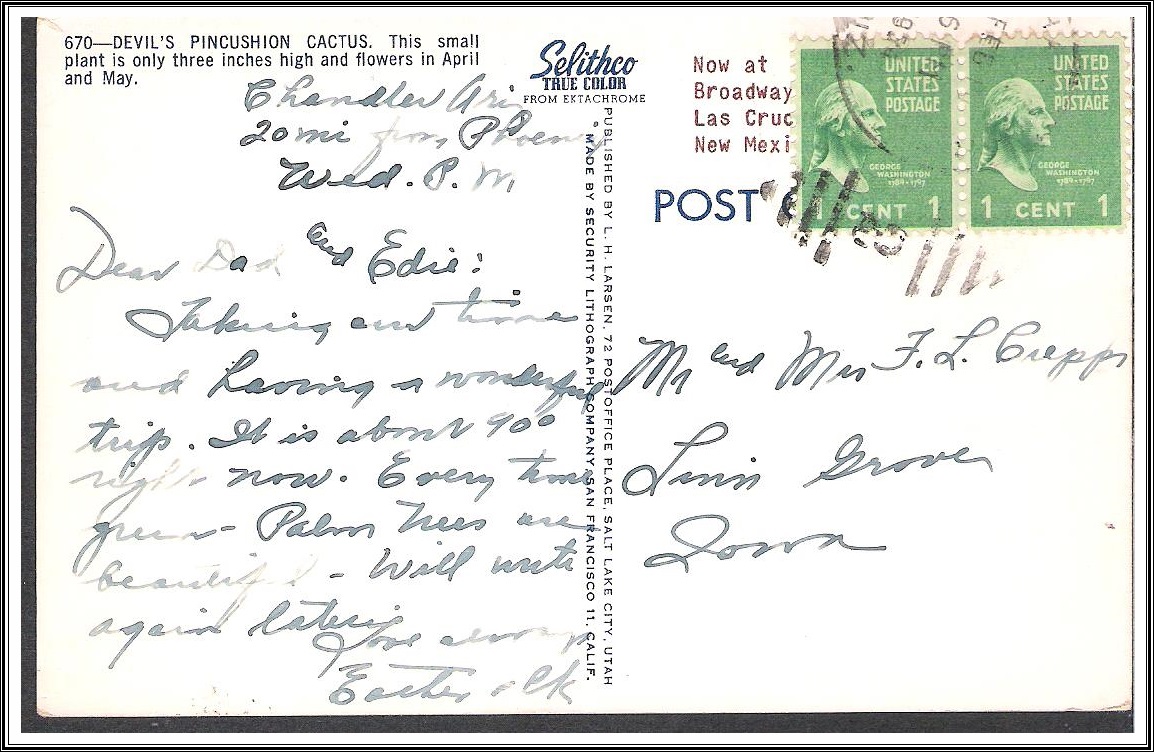 670—DEVIL'S PINCUSHION CACTUS. This small
plant is only three inches high and flowers in April
and May.
Selithco
TRUE COLOR
FROM EKTACHROME
Chandler Ariz
20 mi from Phoenix
Wed. P. M
Dear Dad and Edie:
Taking our time
and having a wonderful
trip. It is about 90°
right now. Every thing
green - Palm trees are
beautiful - Will write
again later.
Love always
PUBLISHED BY L. H. LARSEN, 72 POSTOFFICE PLACE, SALT LAKE CITY, UTAH
MADE BY SECURITY LITHOGRAPH COMPANY, SAN FRANCISCO 11, CALIF.
Now at
Broadway
Las Cruc
New Mexi
POST
UNITED
STATES
POSTAGE
GEORGE
WASHINGTON
1789-1797
1 CENT 1
UNITED
STATES
POSTAGE
GEORGE
WASHINGTON
1789-1797
1 CENT 1
Mr and Mrs F. L. Crepps
Linn Grove
Iowa